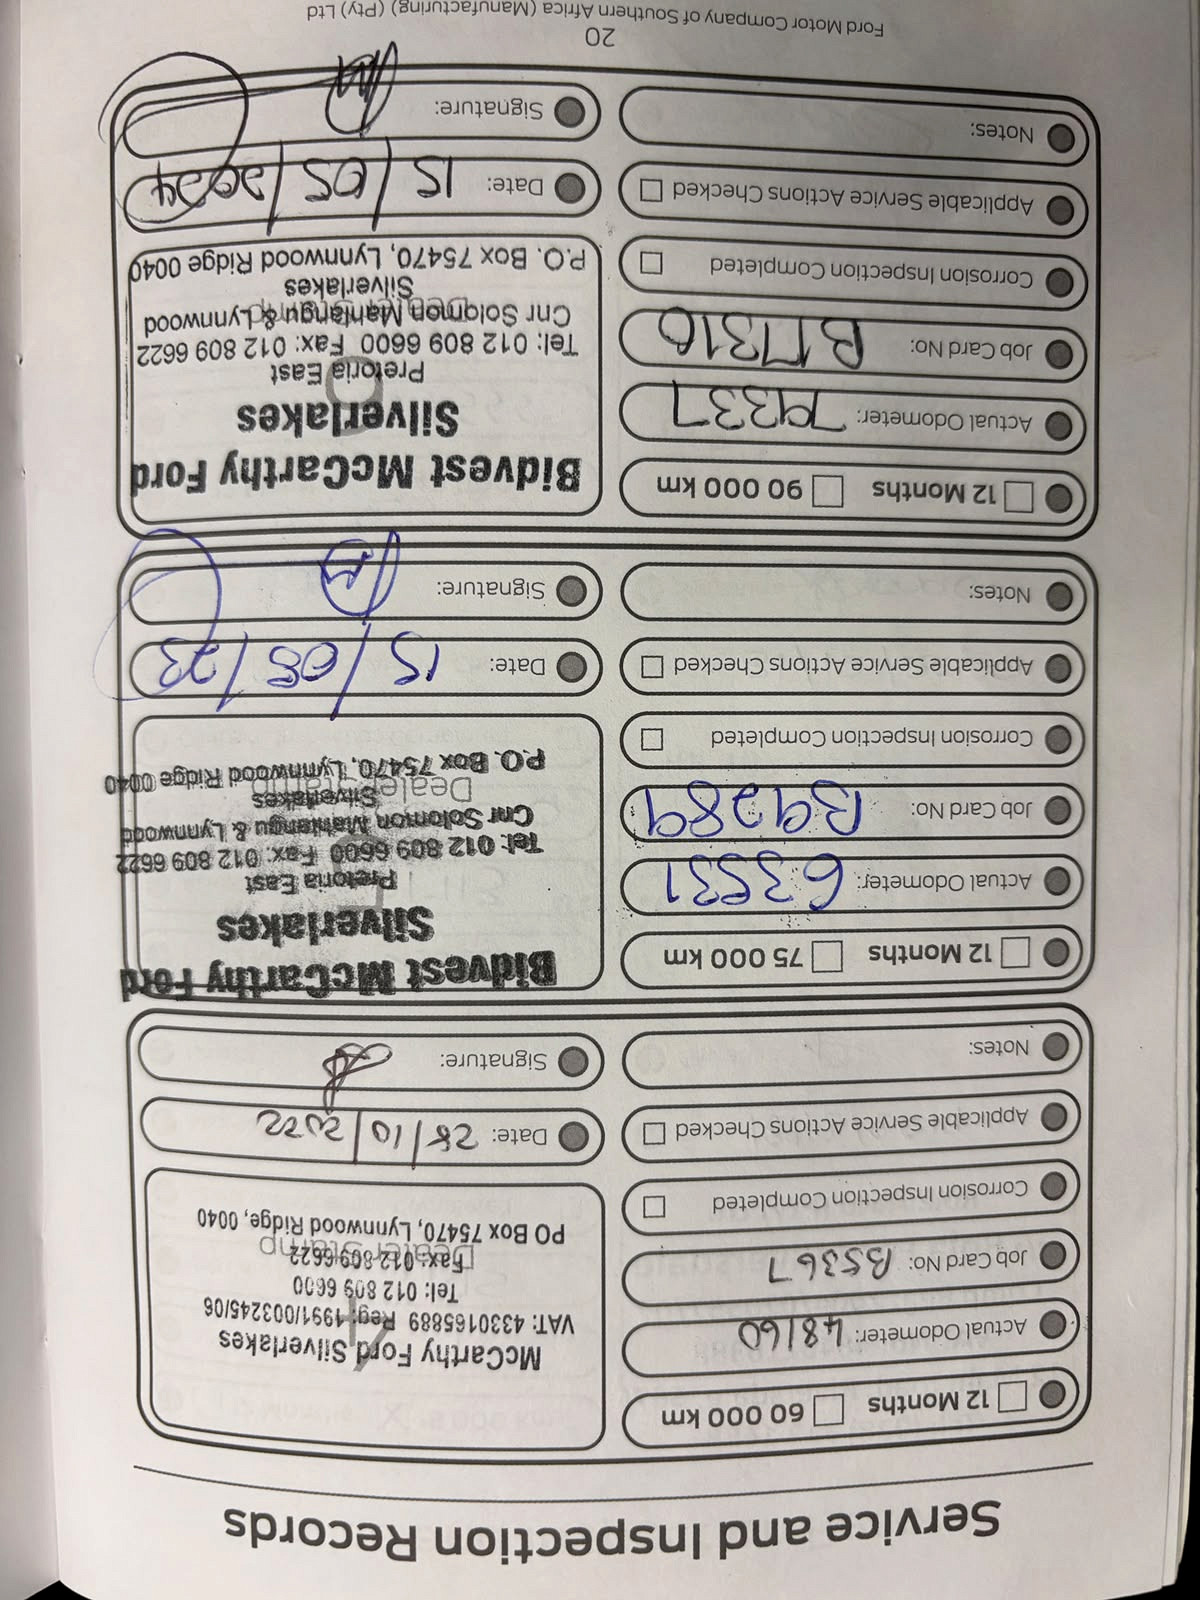 Service and Inspection Records
12 Months 60 000 km
Actual Odometer: 48160
Job Card No: B5367
Corrosion Inspection Completed
Applicable Service Actions Checked
Notes:
McCarthy Ford Silverlakes
VAT: 4330165889 Reg: 1991/003245/06
Tel: 012 809 6600
Fax: 012 809 6622
Dealer Stamp
PO Box 75470, Lynnwood Ridge, 0040
Date: 28/10/2022
Signature:
12 Months 75 000 km
Actual Odometer: 63531
Job Card No: B9289
Corrosion Inspection Completed
Applicable Service Actions Checked
Notes:
Bidvest McCarthy Ford
Silverlakes
Pretoria East
Tel: 012 809 6600 Fax: 012 809 6622
Cnr Solomon Mahlangu & Lynnwood
Silverlakes
Dealer Stamp
P.O. Box 75470, Lynnwood Ridge 0040
Date: 15/05/23
Signature:
12 Months 90 000 km
Actual Odometer: 79337
Job Card No: B17316
Corrosion Inspection Completed
Applicable Service Actions Checked
Notes:
Bidvest McCarthy Ford
Silverlakes
Pretoria East
Tel: 012 809 6600 Fax: 012 809 6622
Cnr Solomon Mahlangu & Lynnwood
Dealer Stamp
Silverlakes
P.O. Box 75470, Lynnwood Ridge 0040
Date: 15/05/2024
Signature:
20
Ford Motor Company of Southern Africa (Manufacturing) (Pty) Ltd